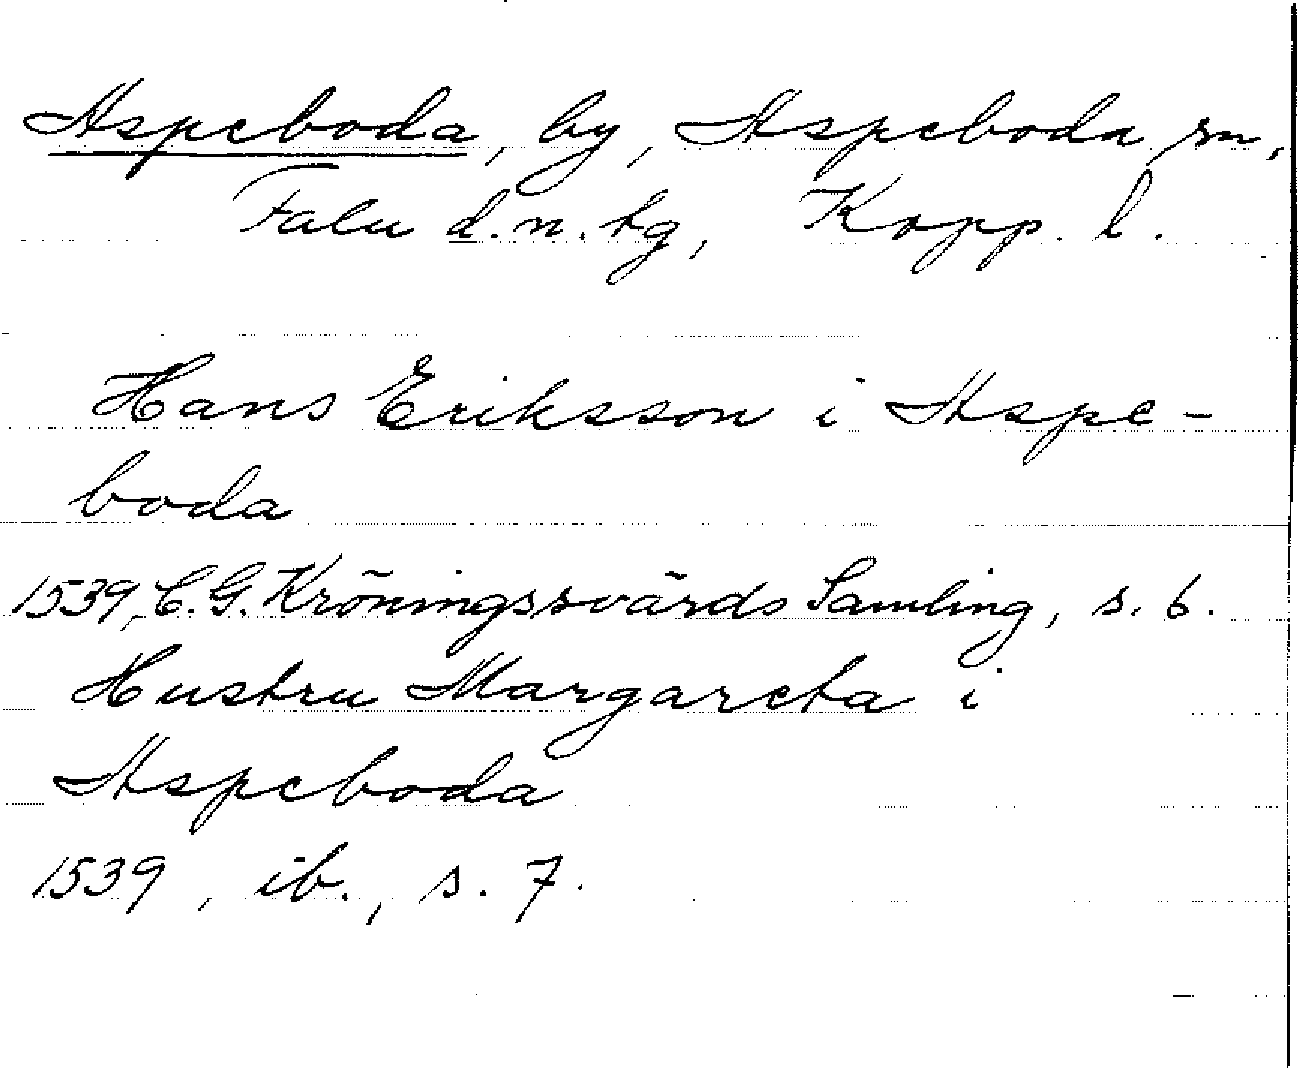 Aspeboda, by, Aspeboda sn,
Falu d.n. tg, Kopp. l.
Hans Eriksson i Aspe-
boda
1539, C. G. Kröningssvärds Samling, s. 6.
Hustru Margareta i
Aspeboda
1539, ib., s. 7.